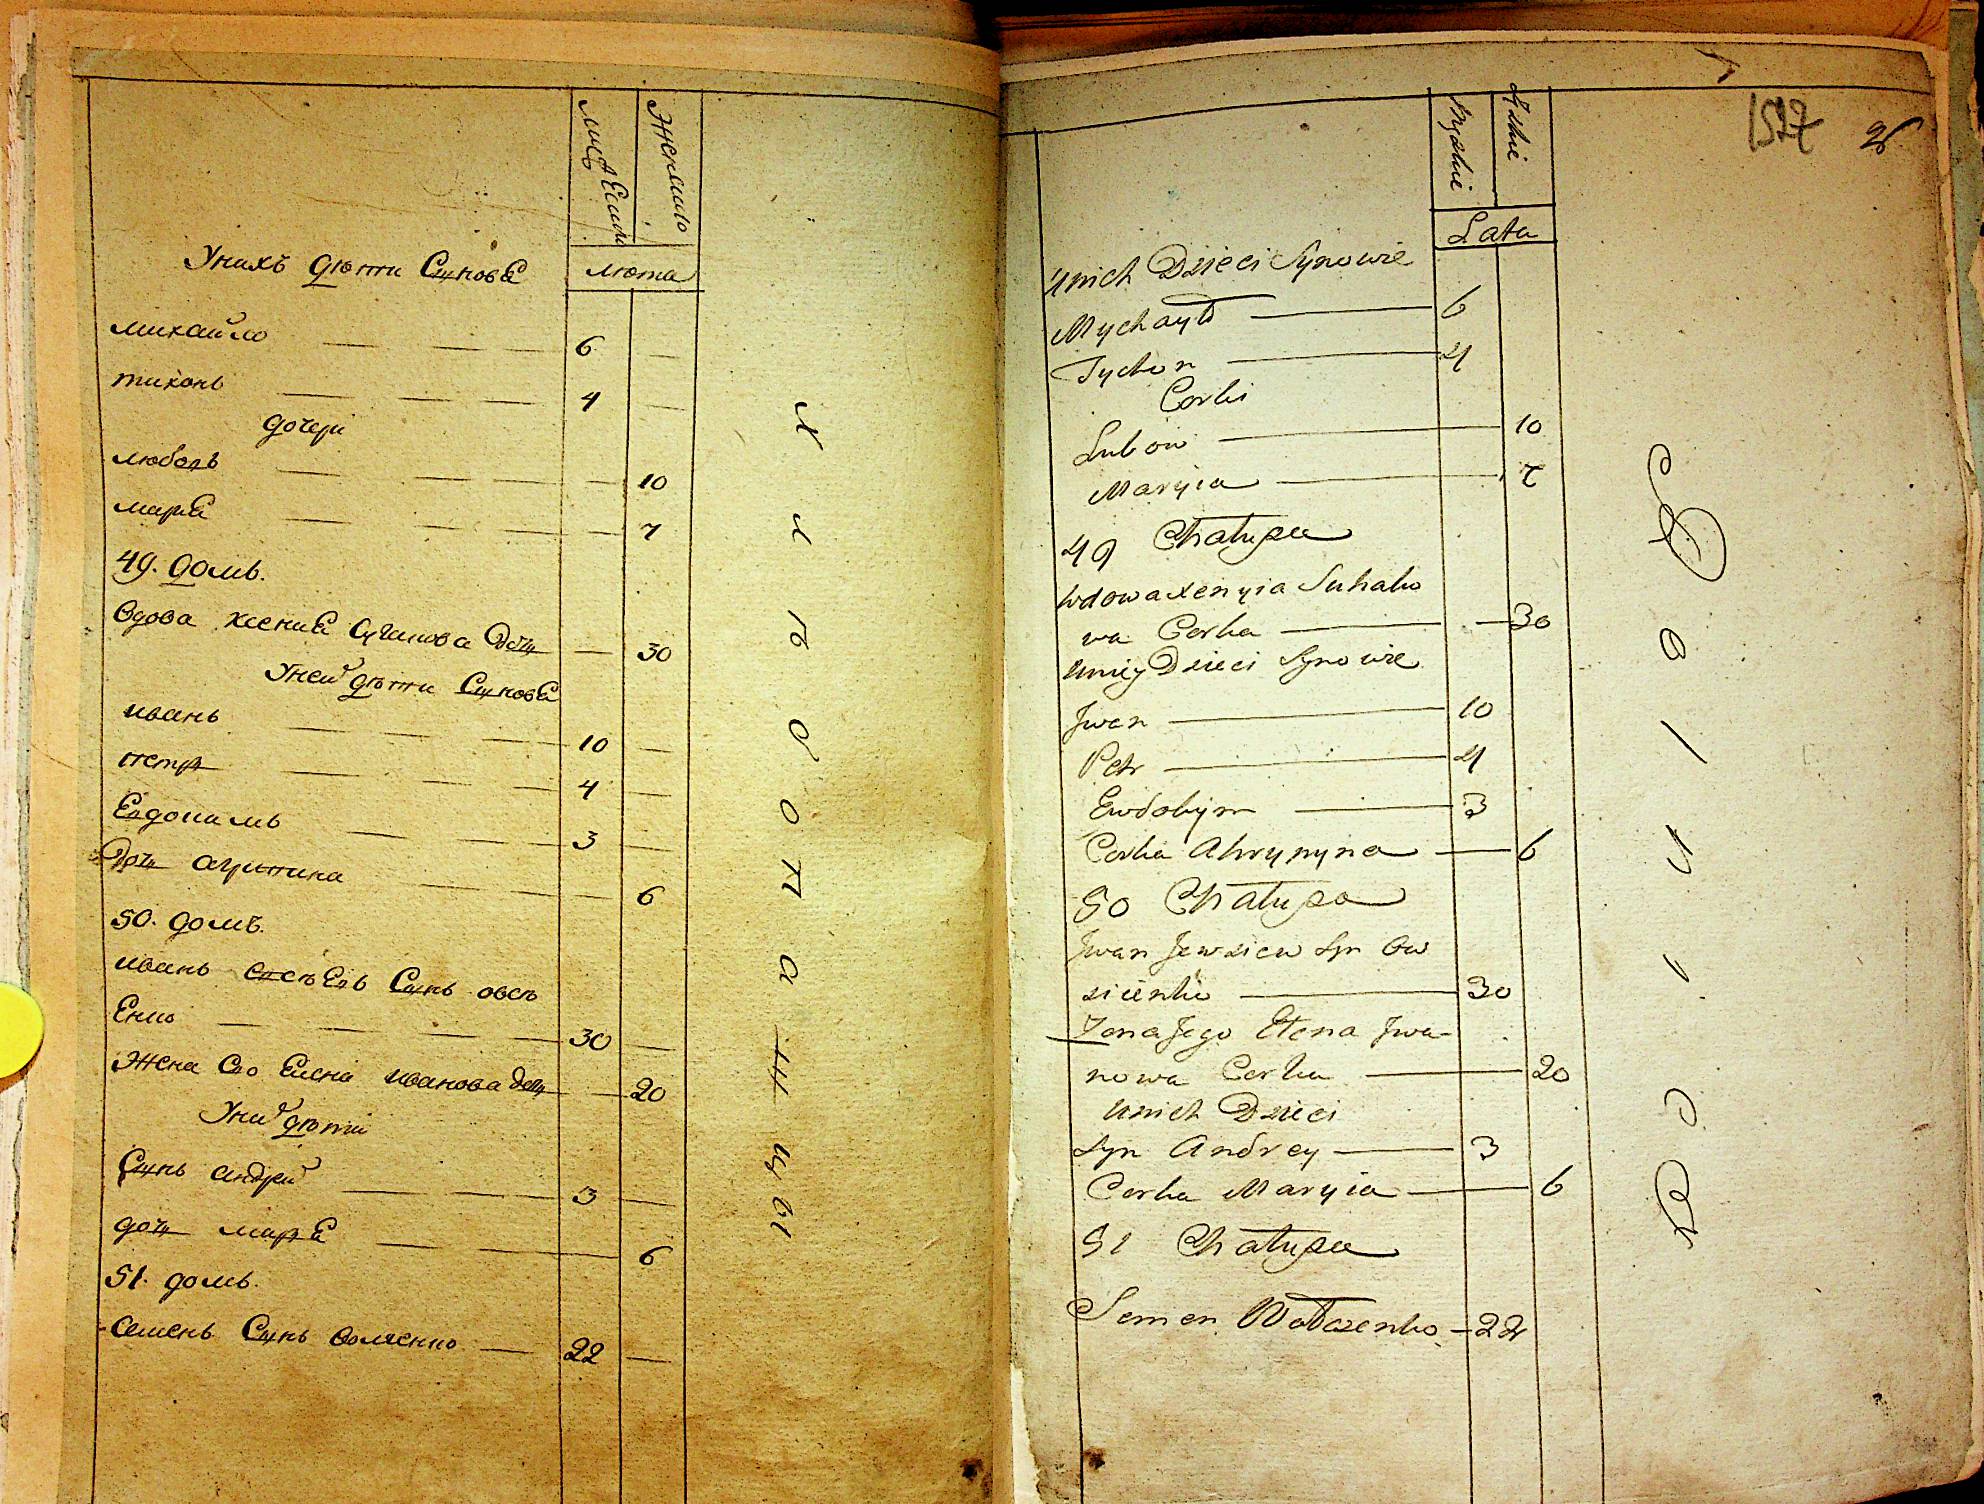 Женско
лѣта
Унихъ дѣти Синовѣ
михайло 6
тихонъ 4
дочери
любовь 10
марѣѣ 7
49. домъ.
Вдова ксениѣ Сучакова дочь 30
Уней дѣти Синовѣ
иванъ 10
петръ 4
Евдокимъ 3
Дочь агрипина 6
50. домъ.
иванъ Евсѣевъ Синъ овсѣ
Енко 30
Жена его Елена иванова дочь 20
Уних дѣти
Синъ андрей 3
дочь марѣѣ 6
51. домъ.
Семенъ Синъ 22
хлѣбопашцы
Męzkie
Żeńskie
Lata
Unich Dzieci Synowie
Mychayło 6
Tychon 4
Corki
Lubow 10
Maryia 7
49 Chałupa
wdowa xenyia Suhako
wa Corka 30
Uniey Dzieci Synowie
Jwan 10
Petr 4
Ewdokym 3
Corka Ahrypyna 6
50 Chałupa
Jwan Jewsiew Syn Ow
sieenko 30
Żona Jego Ełena Jwa-
nowa Corka 20
Unich Dzieci
Syn Andrey 3
Corka Maryia 6
51 Chałupa
Semen 22
26